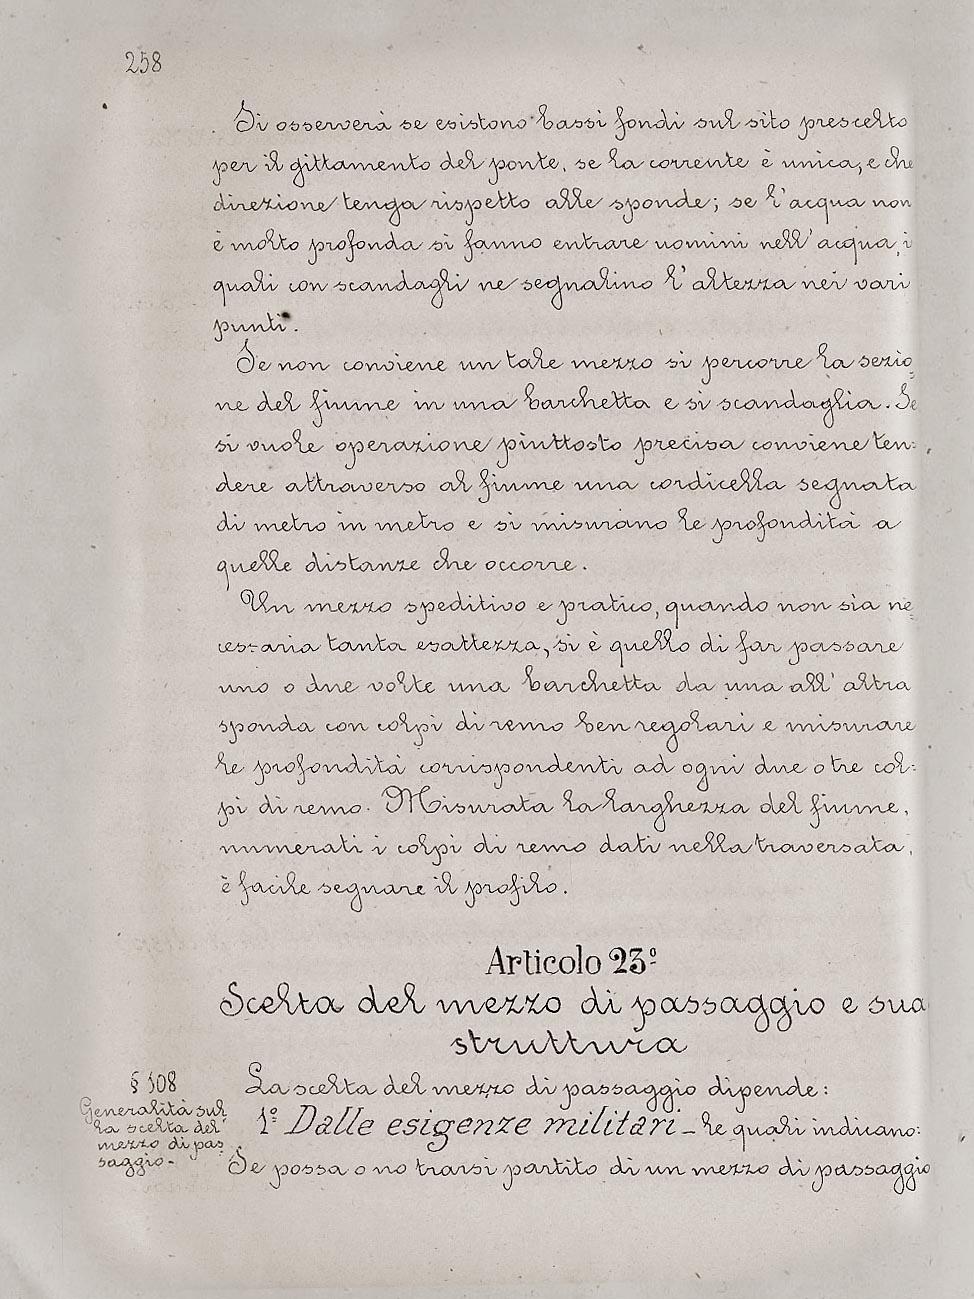 258
Si osserverà se esistono bassi fondi sul sito prescelto
per il gittamento del ponte, se la corrente è unica, e che
direzione tenga rispetto alle sponde; se l'acqua non
è molto profonda si fanno entrare uomini nell'acqua, i
quali con scandagli ne segnalino l'altezza nei vari
punti.
Se non conviene un tale mezzo si percorre la sezio=
ne del fiume in una barchetta e si scandaglia. Se
si vuole operazione piuttosto precisa conviene ten=
dere attraverso al fiume una cordicella segnata
di metro in metro e si misurano le profondità a
quelle distanze che occorre.
Un mezzo speditivo e pratico, quando non sia ne=
cessaria tanta esattezza, si è quello di far passare
uno o due volte una barchetta da una all'altra
sponda con colpi di remo ben regolari e misurare
le profondità corrispondenti ad ogni due o tre col=
pi di remo. Misurata la larghezza del fiume,
numerati i colpi di remo dati nella traversata,
è facile segnare il profilo.
Articolo 23º
Scelta del mezzo di passaggio e sua
struttura
§ 108
Generalità sul
la scelta del
mezzo di pas
saggio-
La scelta del mezzo di passaggio dipende:
1º Dalle esigenze militari - le quali indicano:
Se possa o no trarsi partito di un mezzo di passaggio